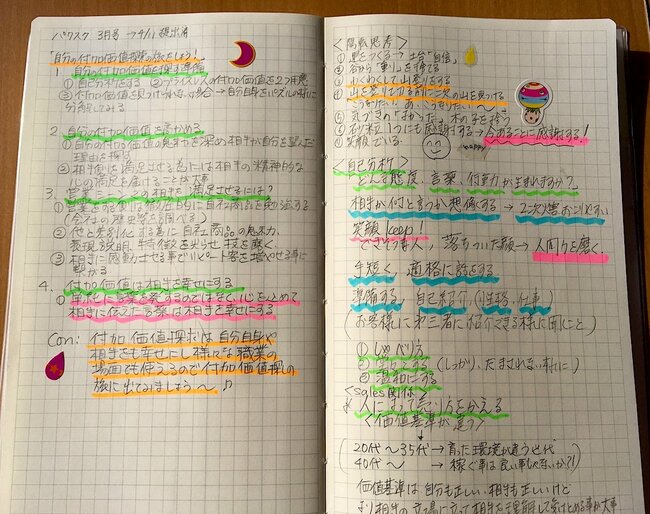 パワスク 3月号 → 4/11 提出済
「自分の付加価値探しの旅をしよう!
1 自分の付加価値を探す準備
① 自己分析をする ② プライスレスの付加価値を2つ用意
③ 付加価値を見つけられない場合 → 自分自身をパズルの様に
分解してみる
2. 自分の付加価値を深める
① 自分の付加価値の魅力を深め相手が自分を選んだ
理由を探る
② 相手側は満足させる為には相手の精神的な
心の満足を届けることが大事
3. 営業 この相手を満足させるには?
① 営業をする側が自分とともに自社商品を振り返る
(会社の歴史等を調べる)
② 他と差別化する為に自社商品の魅力、
表現、説明、特徴を光らせ技を磨く。
③ 相手に感動させる事でリピート客を増やせる事に
繋がる
4. 付加価値は相手を幸せにする
① 単純に言葉を発するのではなく、心を込めて
相手に伝えたる事は相手を幸せにする
Con: 付加価値探しは自分自身や
相手をも幸せにし様々な職業の
場面でも使えるので付加価値探しの
旅に出てみましょう〜♪
① 里をつくる → 土台「自信」
② 谷から「東」山を捨てる
③ わくわくして山登りをする
④ 山を登り切る前に次の山を見つける
こうなりたい! あ、こうなりたい!〜
⑤ 気づきの「よかった」木の子を拾う
⑥ 砂粒1つにも感謝する → 今あることに感謝する!
⑦ 笑顔でいる
happy
<自己分析>
どんな態度、言葉、行動力が生まれますか?
相手が何と言うか想像する → 2次災害おこりやすい
笑顔 keep!
できる事人 落ちついた顔 → 人間力を磨く。
手短く、適格に話をする
準備する、自己紹介(性格、仕事)
(お客様に第三者に紹介できる様に聞くこと)
① しゃべりる
② 堂々とする(しっかり、だまされない様に)
③ 温和にする
<sales関係
* 人によって売り方を分える
<価値基準が違う>
↓
20代〜35代 → 育った環境が違う世代
40代〜 → 稼ぐ事は良い事じゃないか?!
価値基準は自分も正しい、相手も正しいけど
より相手の立場に立って相手を理解して受けとめる事が大事